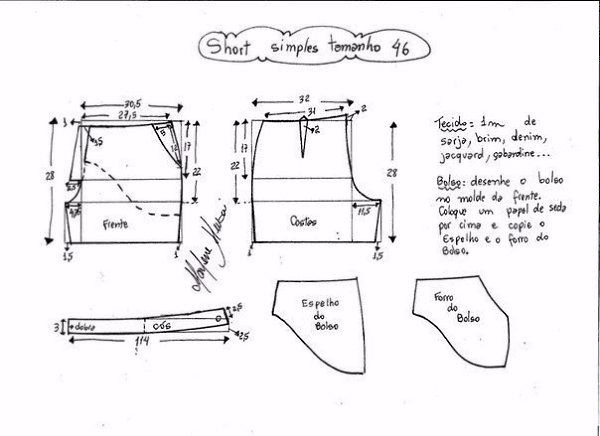 Short simples tamanho 46
30,5
27,5
1
3,5
8
12
17
22
28
2,5
4,5
Frente
1,5
1
32
31
2
2
17
22
28
11,5
Costas
1
1,5
Marlene Mukai
Tecido: 1m de
sarja, brim, denim,
jacquard, gabardine...
Bolso: desenhe o bolso
no molde da frente.
Coloque um papel de seda
por cima e copie o
Espelho e o forro do
Bolso.
3
dobra
cós
2,5
2,5
114
Espelho
do
Bolso
Forro
do
Bolso